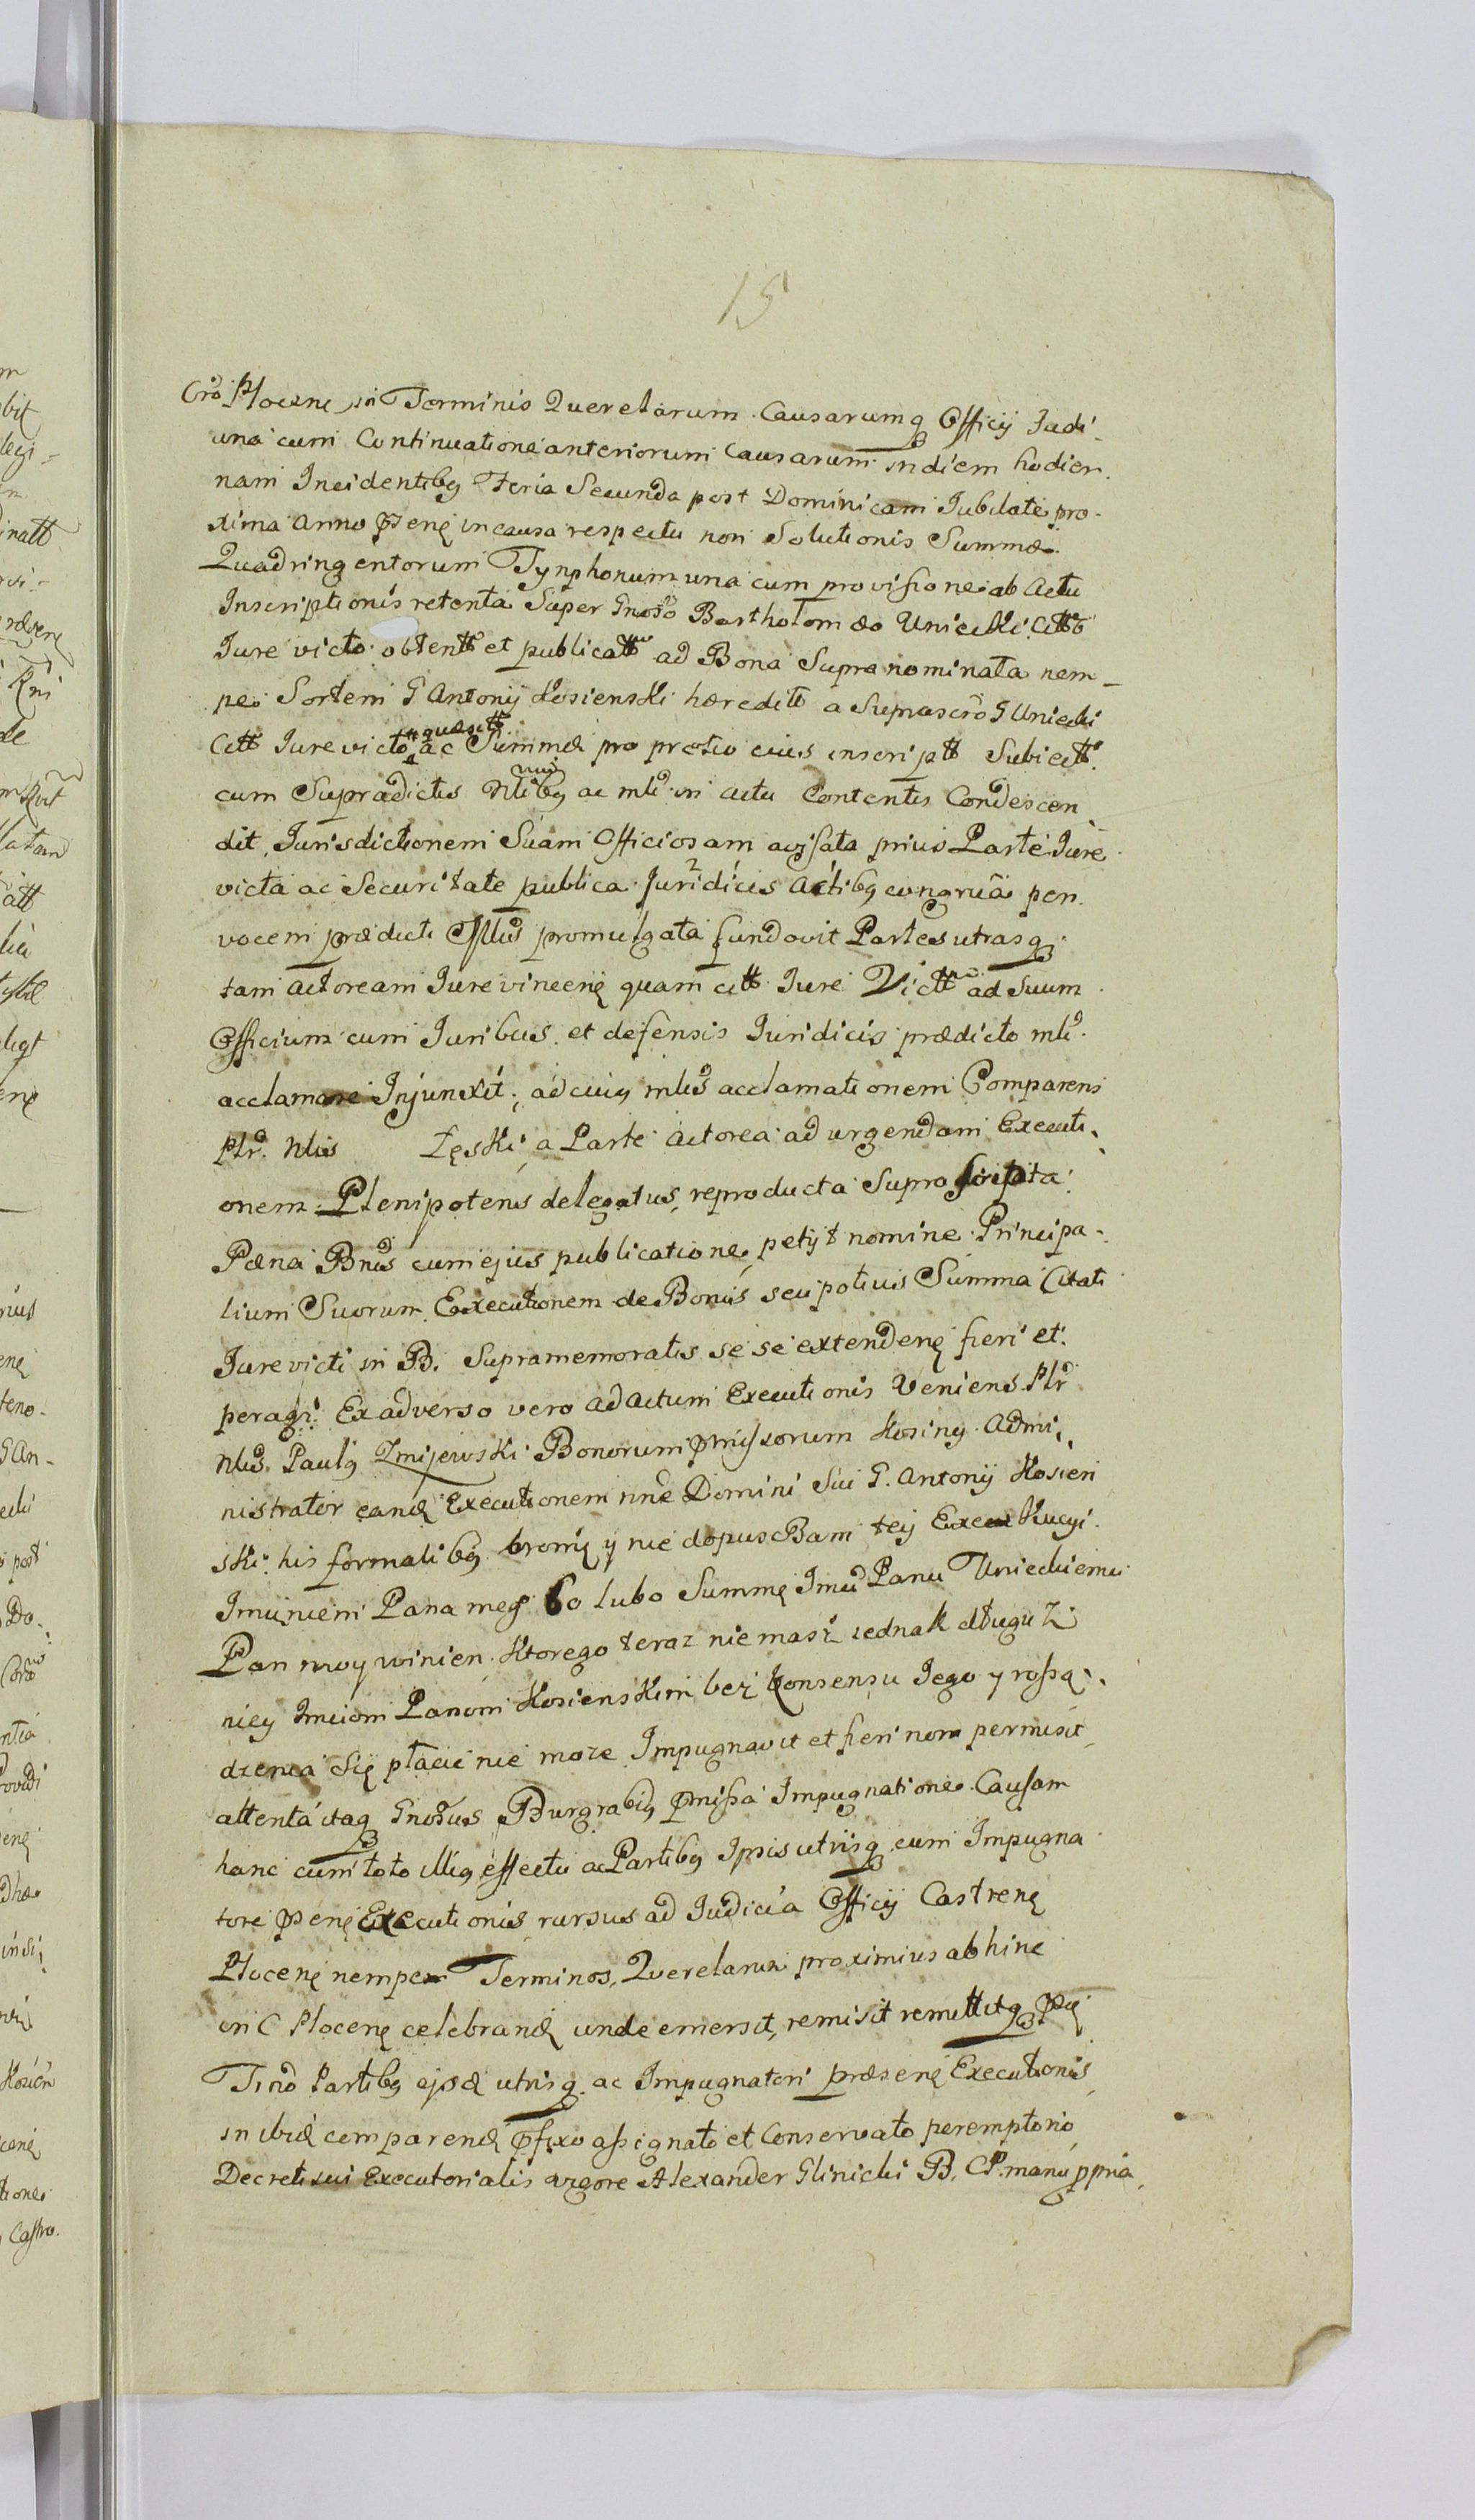 15
Cro Plocenę in Terminis Querelarum Causarumq Officij Judi-
una cum Continuatione anteriorum Causarum in diem hodier-
nam Incidentibq Feria Secunda post Dominicam Jubilate pro-
xima Anno Psenę in causa respectu non Solutionis Summæ
Quadringentorum Tynphonum una cum provisione ab Actu
Inscriptionis retenta Super Gnoso Bartholomæo Uniecki Citto
Jure victo obtentt et publicatt ad Bona Supra nominata nem-
pe Sortem G Antonij Kosienski hæreditt a Suprascro G Uniecki
quæsitt
Citt Jure victo ac Summæ pro prætio eius inscriptt Subiectt
cum Supradictis Nlibq ac mli in actu Contentis Condescen-
dit, Jurisdictionem Suam Officiosam avisata prius Parte Jure
victa ac Securitate publica Juridicis Actibq congrua per
vocem prædicti Mlis promulgata fundavit Partes utrasq
tam actoream Jure vincenę quam citt Jure Victt ad Suum
Officium cum Juribus et defensis Juridicis prædicto mli
acclamare Injunxit; ad cuiq mlis acclamationem Comparens
Plr. Nlis Łęski a Parte Actorea ad urgendam Executi-
onem Plenipotens delegatus, reproducta Supra scripta
Pæna Bnis cum ejus publicatione, petijt nomine Principa-
lium Suorum Executionem de Bonis seu potius Summa Citati
Jure victi in B. Supramemoratis se se extendenę fieri et
peragi. Ex adverso vero ad actum Executionis Veniens Plr
Nlis. Paulq Zmijewski Bonorum pmissorum Kosiny Admi-
nistrator eand Executionem nne Domini Sui G. Antonij Kosien
ski his formalibq bronię y nie dopuscBam tey Exekucyi
Imięniem Pana meg Bo lubo Summę Jmu Panu Unieckiemu
Pan moy winien Ktorego teraz niemasz jednak długu z
niey Jmciom Panom Kosienskim bez Konsensu Jego y roszą-
dzenia Się płacic nie moze Impugnavit et fieri non permisit,
attenta itaq Gnosus Burgrabiq pmissa Impugnatione Causam
hanc cum toto illiq effectu ac Partibq Ipsis utrisq cum Impugna
tore psenę Executionis rursus ad Judicia Officij Castrenę
Plocenę nempe Terminos, Querelarum proximius abhinc
in C Plocenę celebrand unde emersit, remisit remittitq
Trno Partibq ejsd utrisq ac Impugnatori præsenę Executionis
in ibid comparend pfixo assignato et Conservato peremptorio
Decreti sui Executorialis vigore Alexander Glinicki B. CP. manu ppria